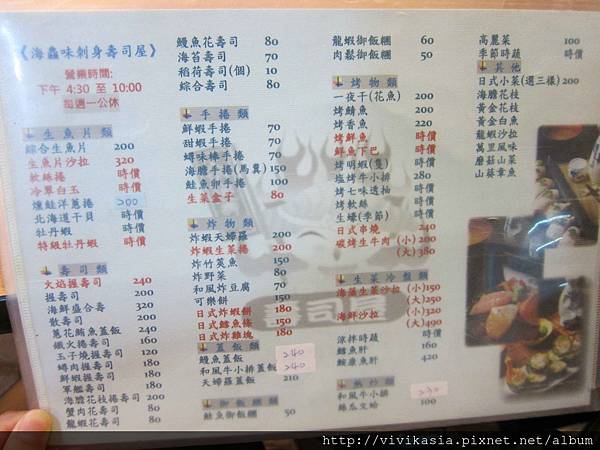 《海鱻味刺身壽司屋》
營業時間:
下午 4:30 至 10:00
每週一公休
生魚片類
綜合生魚片 200
生魚片沙拉 320
軟絲捲 時價
冷翠白玉 時價
燻鮭洋蔥捲 200
北海道干貝 時價
牡丹蝦 時價
特級牡丹蝦 時價
壽司類
火焰握壽司 240
握壽司 200
海鮮盛合壽 320
散壽司 200
蔥花鮪魚蓋飯 200
鐵火捲壽司 200
玉子燒握壽司
鱘肉握壽司 180
鮮蝦握壽司 180
軍艦壽司 180
海膽花枝捲壽司 200
蟹肉花壽司 80
龍蝦花壽司 80
鰻魚花壽司 80
海苔壽司 70
稻荷壽司(個) 10
綜合壽司 80
手捲類
鮮蝦手捲 70
甜蝦手捲 70
蟳味棒手捲 70
海膽手捲(馬糞) 150
鮭魚卵手捲 100
生菜盒子 80
炸物類
炸蝦天婦羅 200
炸蝦生菜捲 200
炸竹筴魚 150
炸野菜 80
和風炸豆腐 70
可樂餅
日式炸蝦餅 180
日式鱈魚條 150
日式炸雞塊 150
蓋飯類
鰻魚蓋飯 240
和風牛小排蓋飯 240
天婦羅蓋飯 210
御飯糰類
鮭魚御飯糰 50
龍蝦御飯糰 60
肉鬆御飯糰 50
烤物類
一夜干(花魚) 200
烤鯖魚 200
烤香魚 220
烤鮮魚 時價
烤魚下巴 時價
烤明蝦(隻) 時價
塩烤牛小排 200
烤七味透抽 時價
烤軟絲 時價
生蠔(季節) 時價
日式串燒 240
碳烤生牛肉 (小) 200
(大) 380
生菜冷盤類
海藻生菜沙拉 (小) 150
(大) 250
海鮮沙拉 (小) 320
(大) 490
涼拌時蔬 時價
鱈魚肝 160
鮟鱇魚肝 420
和風牛小排 230
絲瓜文蛤 100
高麗菜 100
季節時蔬 時價
其他
日式小菜(選三樣) 200
海膽花枝
黃金花枝
黃金白魚
龍蝦沙拉
萬里風味
蘑菇山菜
山藥章魚
壽司屋
http://vivikasia.pixnet.net/album